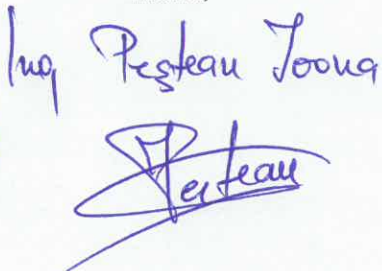 Ing Peștean Ioana
Peștean